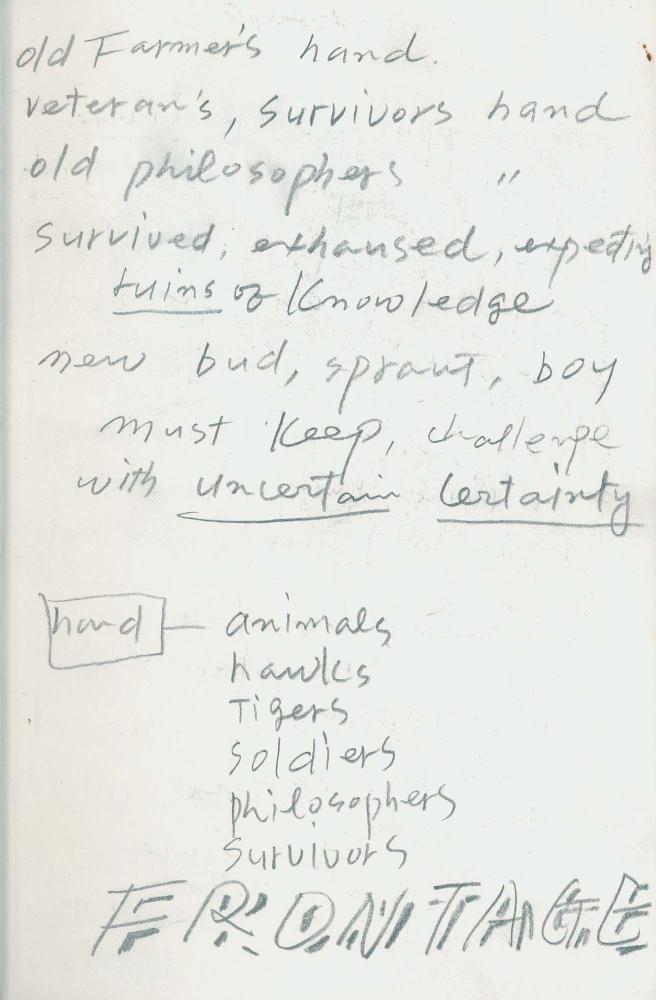 old Farmer's hand.
veteran's, survivors hand
old philosophers "
survived, exhaused, expecting
ruins of Knowledge
new bud, sprout, boy
must keep, challenge
with uncertain certainty
hand — animals
hawks
Tigers
soldiers
philosophers
survivors
FRONTAGE